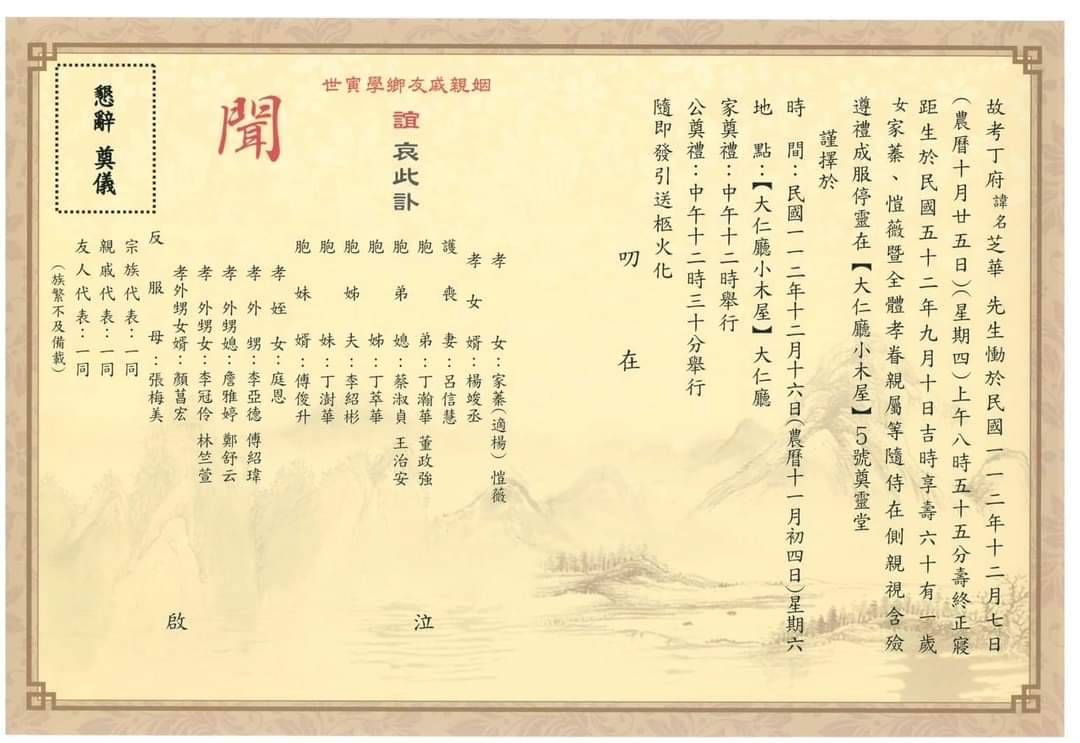 故考丁府諱名芝華　先生慟於民國一一二年十二月七日
(農曆十月廿五日)(星期四)上午八時五十五分壽終正寢
距生於民國五十二年九月十日吉時享壽六十有一歲
女家蓁、愷薇暨全體孝眷親屬等隨侍在側親視含殮
遵禮成服停靈在【大仁廳小木屋】５號奠靈堂
謹擇於
時　間：民國一一二年十二月十六日(農曆十一月初四日)星期六
地　點：【大仁廳小木屋】大仁廳
家奠禮：中午十二時舉行
公奠禮：中午十二時三十分舉行
隨即發引送柩火化
叨　在
姻親戚友鄉學寅世
誼哀此訃
聞
孝　女：家蓁(適楊)　愷薇
孝女婿：楊竣丞
護喪妻：呂信慧
胞弟：丁瀚華　董政強
胞弟媳：蔡淑貞　王治安
胞姊：丁萃華
胞姊夫：李紹彬
胞妹：丁澍華
胞妹婿：傅俊升
孝姪女：庭恩
孝外甥：李亞德　傅紹瑋
孝外甥媳：詹雅婷　鄭舒云
孝外甥女：李冠伶　林竺萱
孝外甥女婿：顏菖宏
反服母：張梅美
泣
啟
宗族代表：一同
親戚代表：一同
友人代表：一同
(族繁不及備載)
懇辭　奠儀